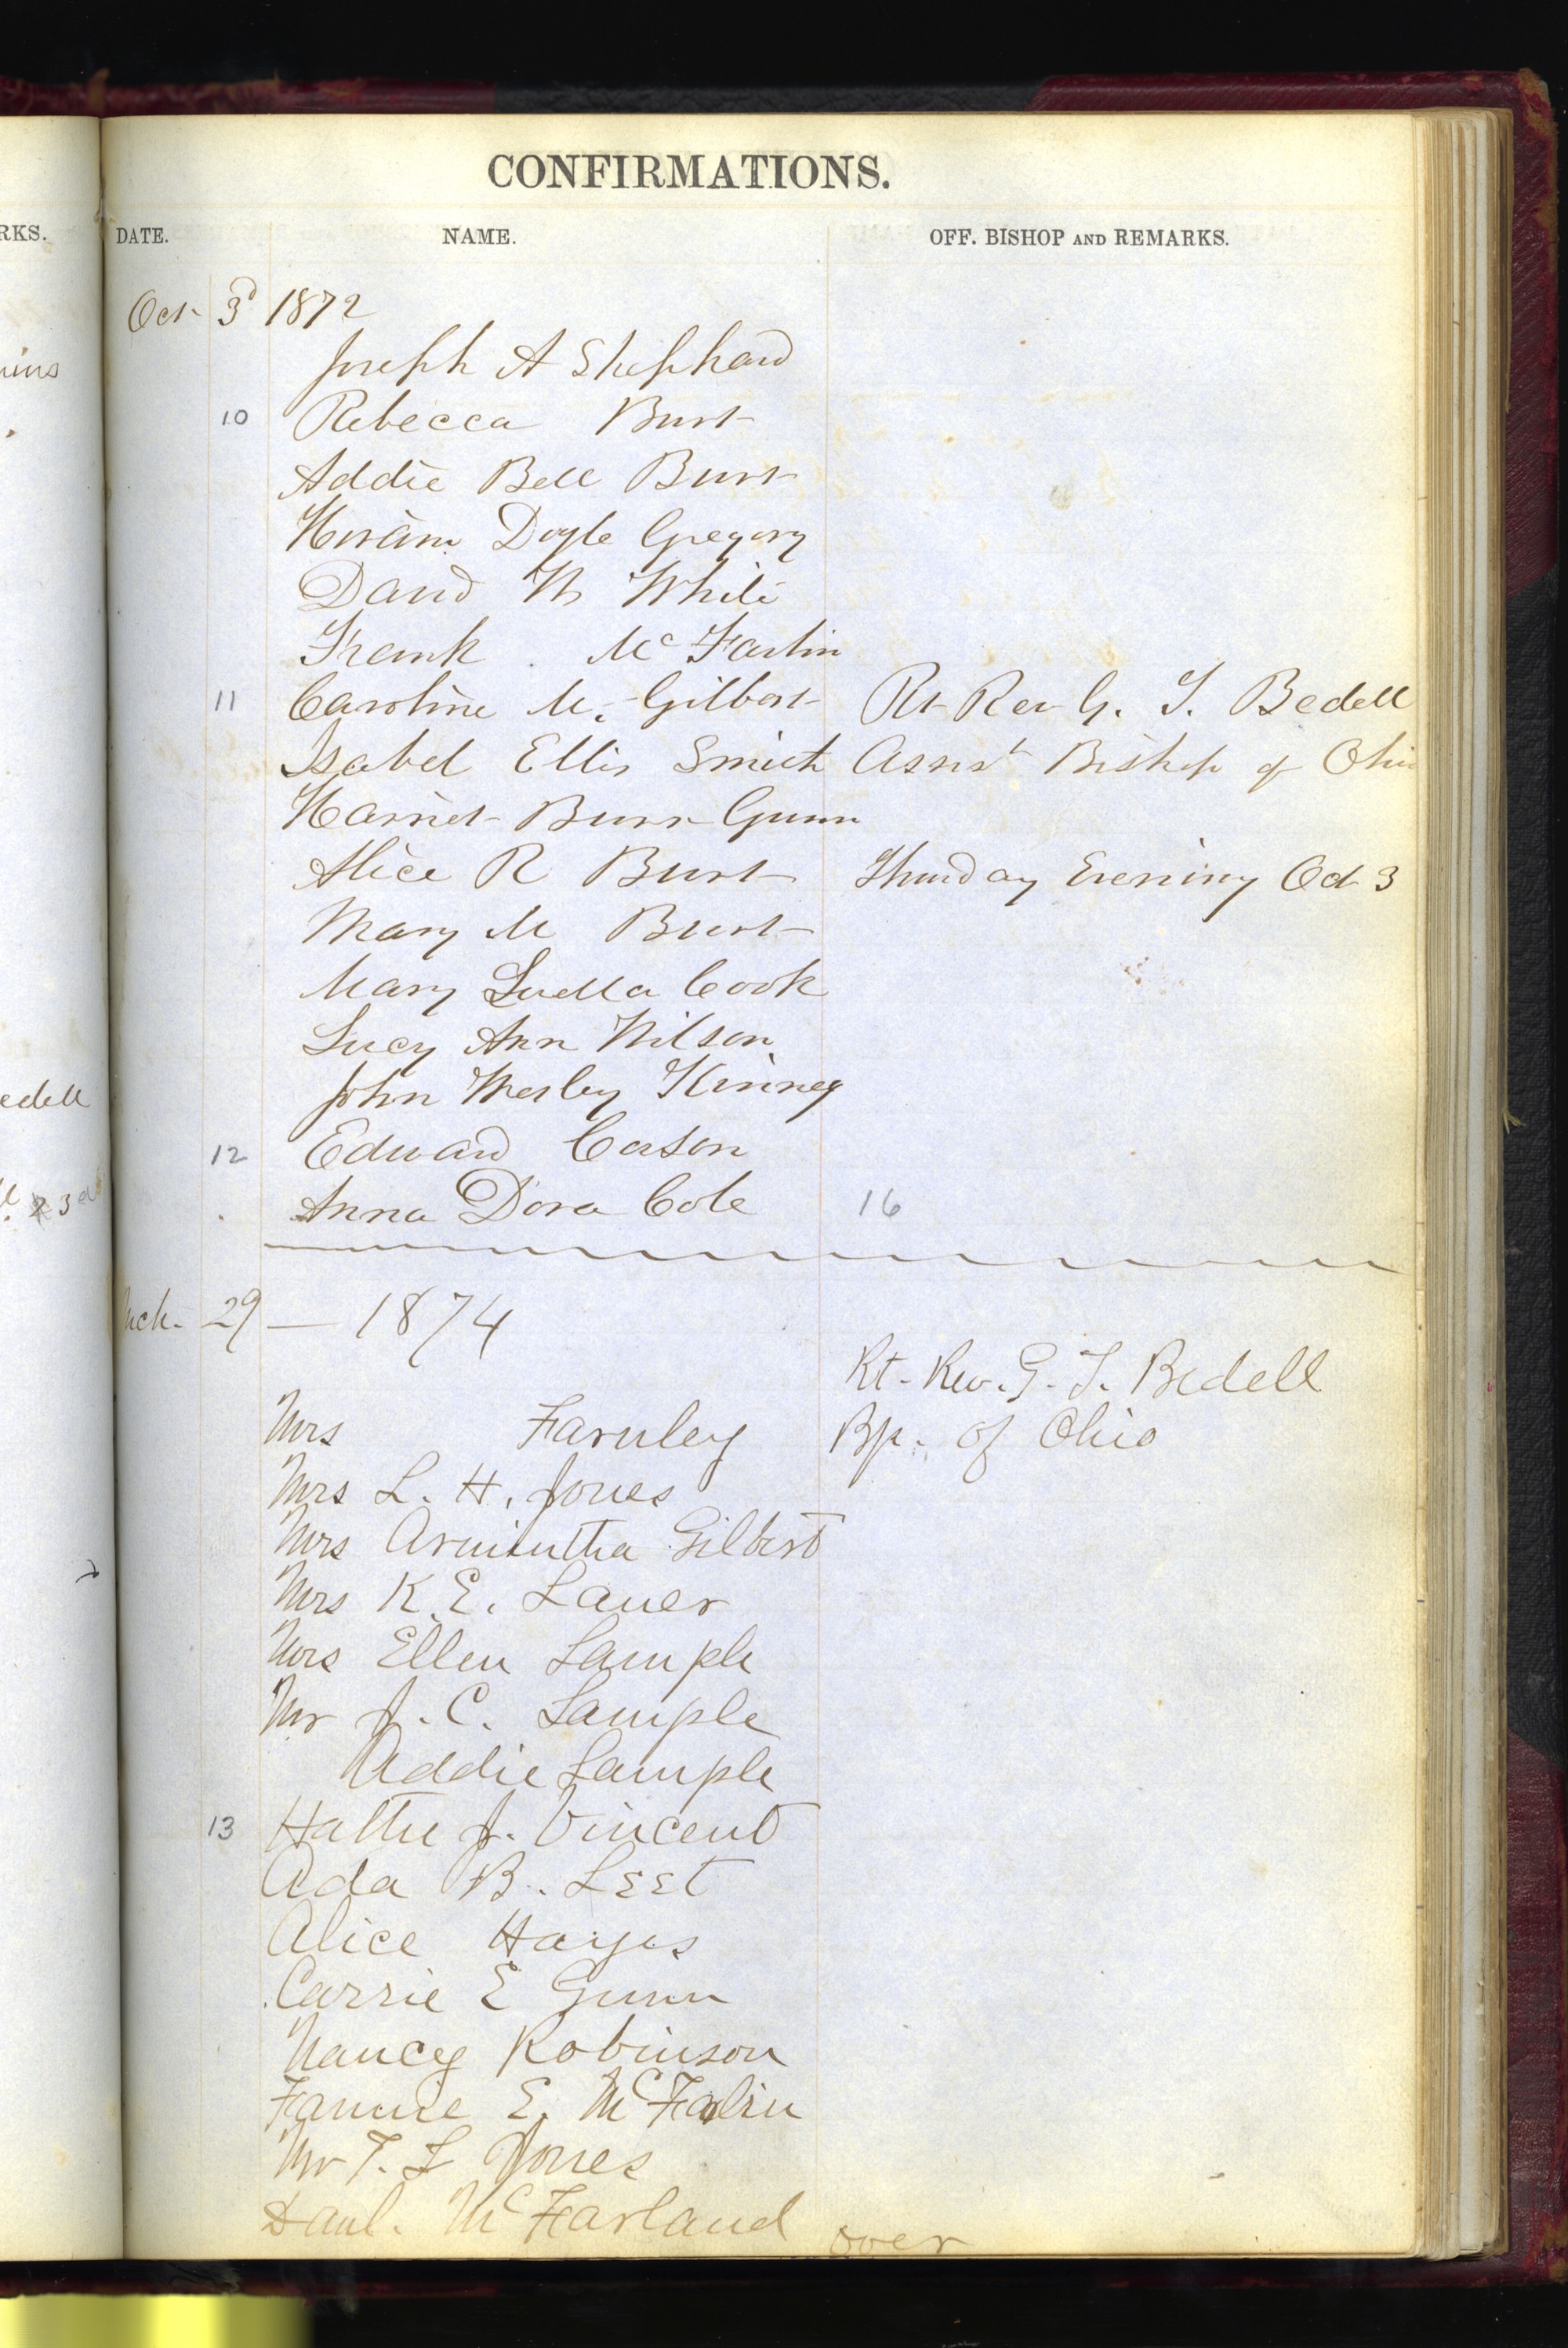 CONFIRMATIONS.
RKS. DATE. NAME. OFF. BISHOP AND REMARKS.
Oct 3d 1872
Joseph A Shephard
10 Rebecca Burt
Addie Bell Burt
Hiram Doyle Gregory
David W White
Frank . Mc Farlin
11 Caroline M. Gilbert Rt Rev G. T. Bedell
Isabel Ellis Smith Assist Bishop of Ohio
Harriet Burr Gunn
Alice R Burt Thursday Evening Oct 3
Mary M Burt
Mary Luella Cook
Lucy Ann Wilson
John Wesley Kinney
edell
12 Edward Corson
3d
Anna Dora Cole 16
Mch. 29 — 1874
Rt. Rev. G. T. Bedell
Mrs Farnley Bp. of Ohio
Mrs L. H. Jones
Mrs Armintha Gilbert
Mrs K. E. Lauer
Mrs Ellen Sample
Mr J. C. Sample
Addie Sample
13 Hattie J. Vincent
Ada B. Leet
Alice Hayes
Carrie E Gunn
Nancy Robinson
Fannie E. McFarlin
Mr T. L Jones
Saml. McFarland over